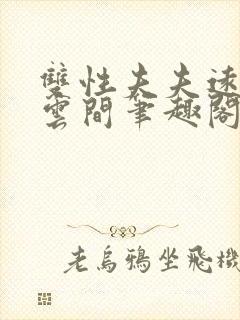 雙性夫夫速
雲間筆趣閣
老烏鴉坐飛機